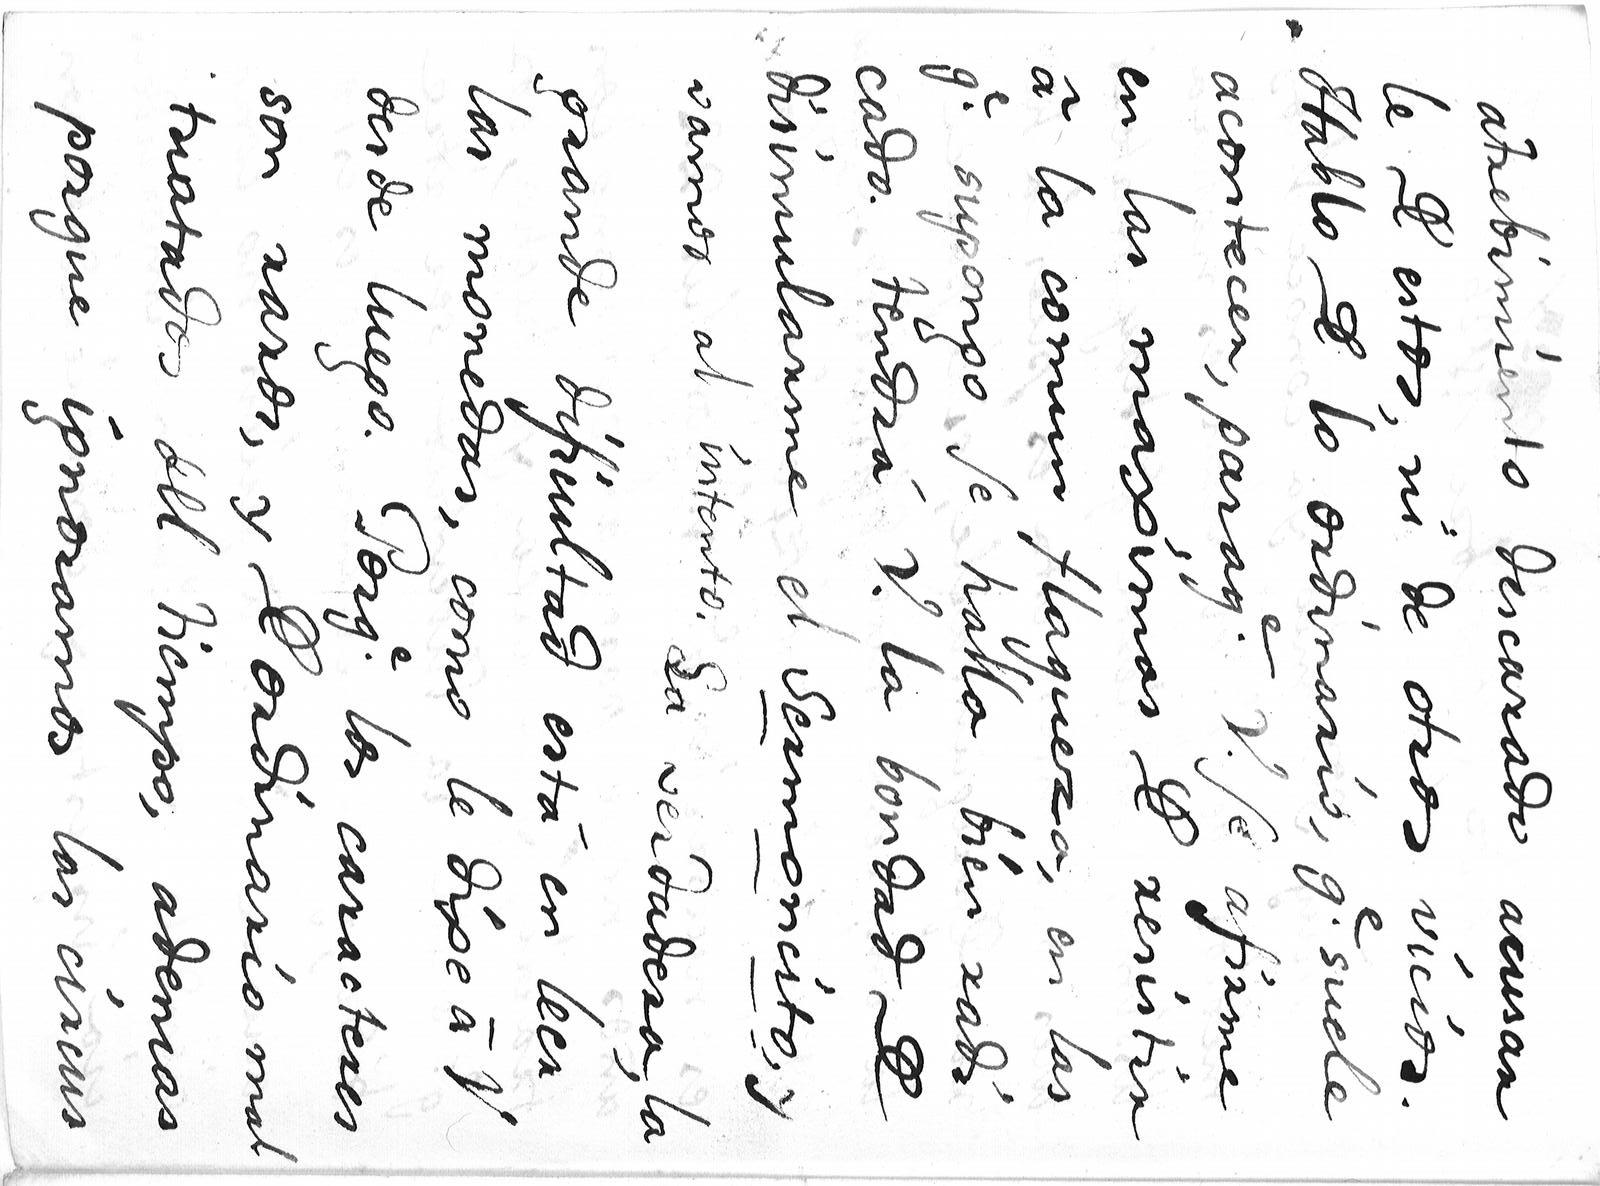 atrebimiento descarado acusar
le D estos, ni de otros vicios.
Hablo D lo ordinario, q.e suele
acontecer, paraq.e V. se afirme
en las maximas D resistir
â la comun flaqueza, en las
q.e supongo se halla bien radi
cado. tendrá V. la bondad D
disimularme el Sermoncito, y
vamos al intento. La verdadera, la
grande dificultad está en leer
las monedas, como le dixe â V
desde luego. Porq.e los caracteres
son raros, y D ordinario mal
tratados del tiempo, ademas
porque ignoramos las circus